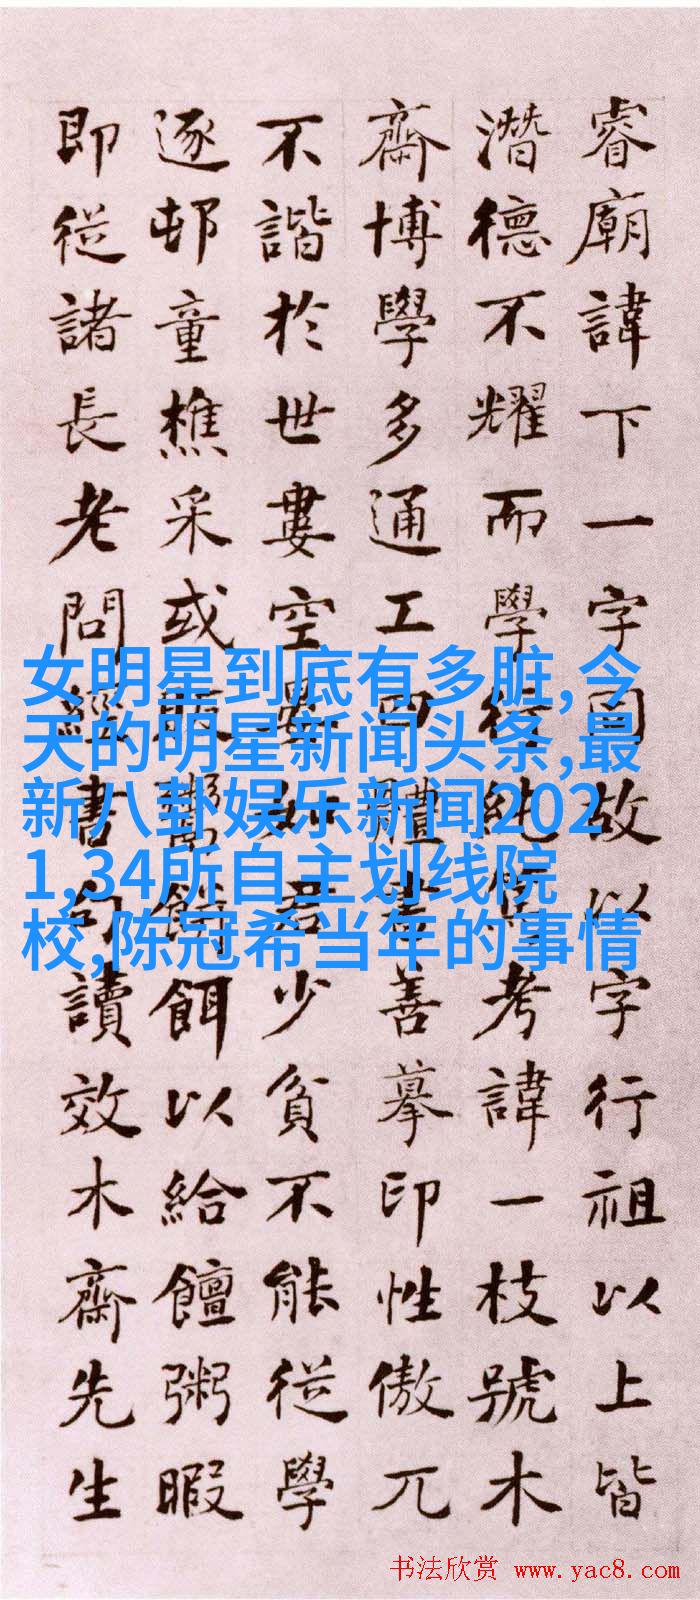 睿廟諱下一字因故以字行祖以上皆
潛德不耀而學行純篤考諱一枝號木
齋博學多通工四體書善摹印性傲兀
不諧於世婁空晏如君少貧不能從學
逐邨童樵采或鬻餅餌以給饘粥暇
即從諸長老問經書句讀效木齋先生
女明星到底有多脏,今
天的明星新闻头条,最
新八卦娱乐新闻202
1,34所自主划线院
校,陈冠希当年的事情
书法欣赏 www.yac8.com